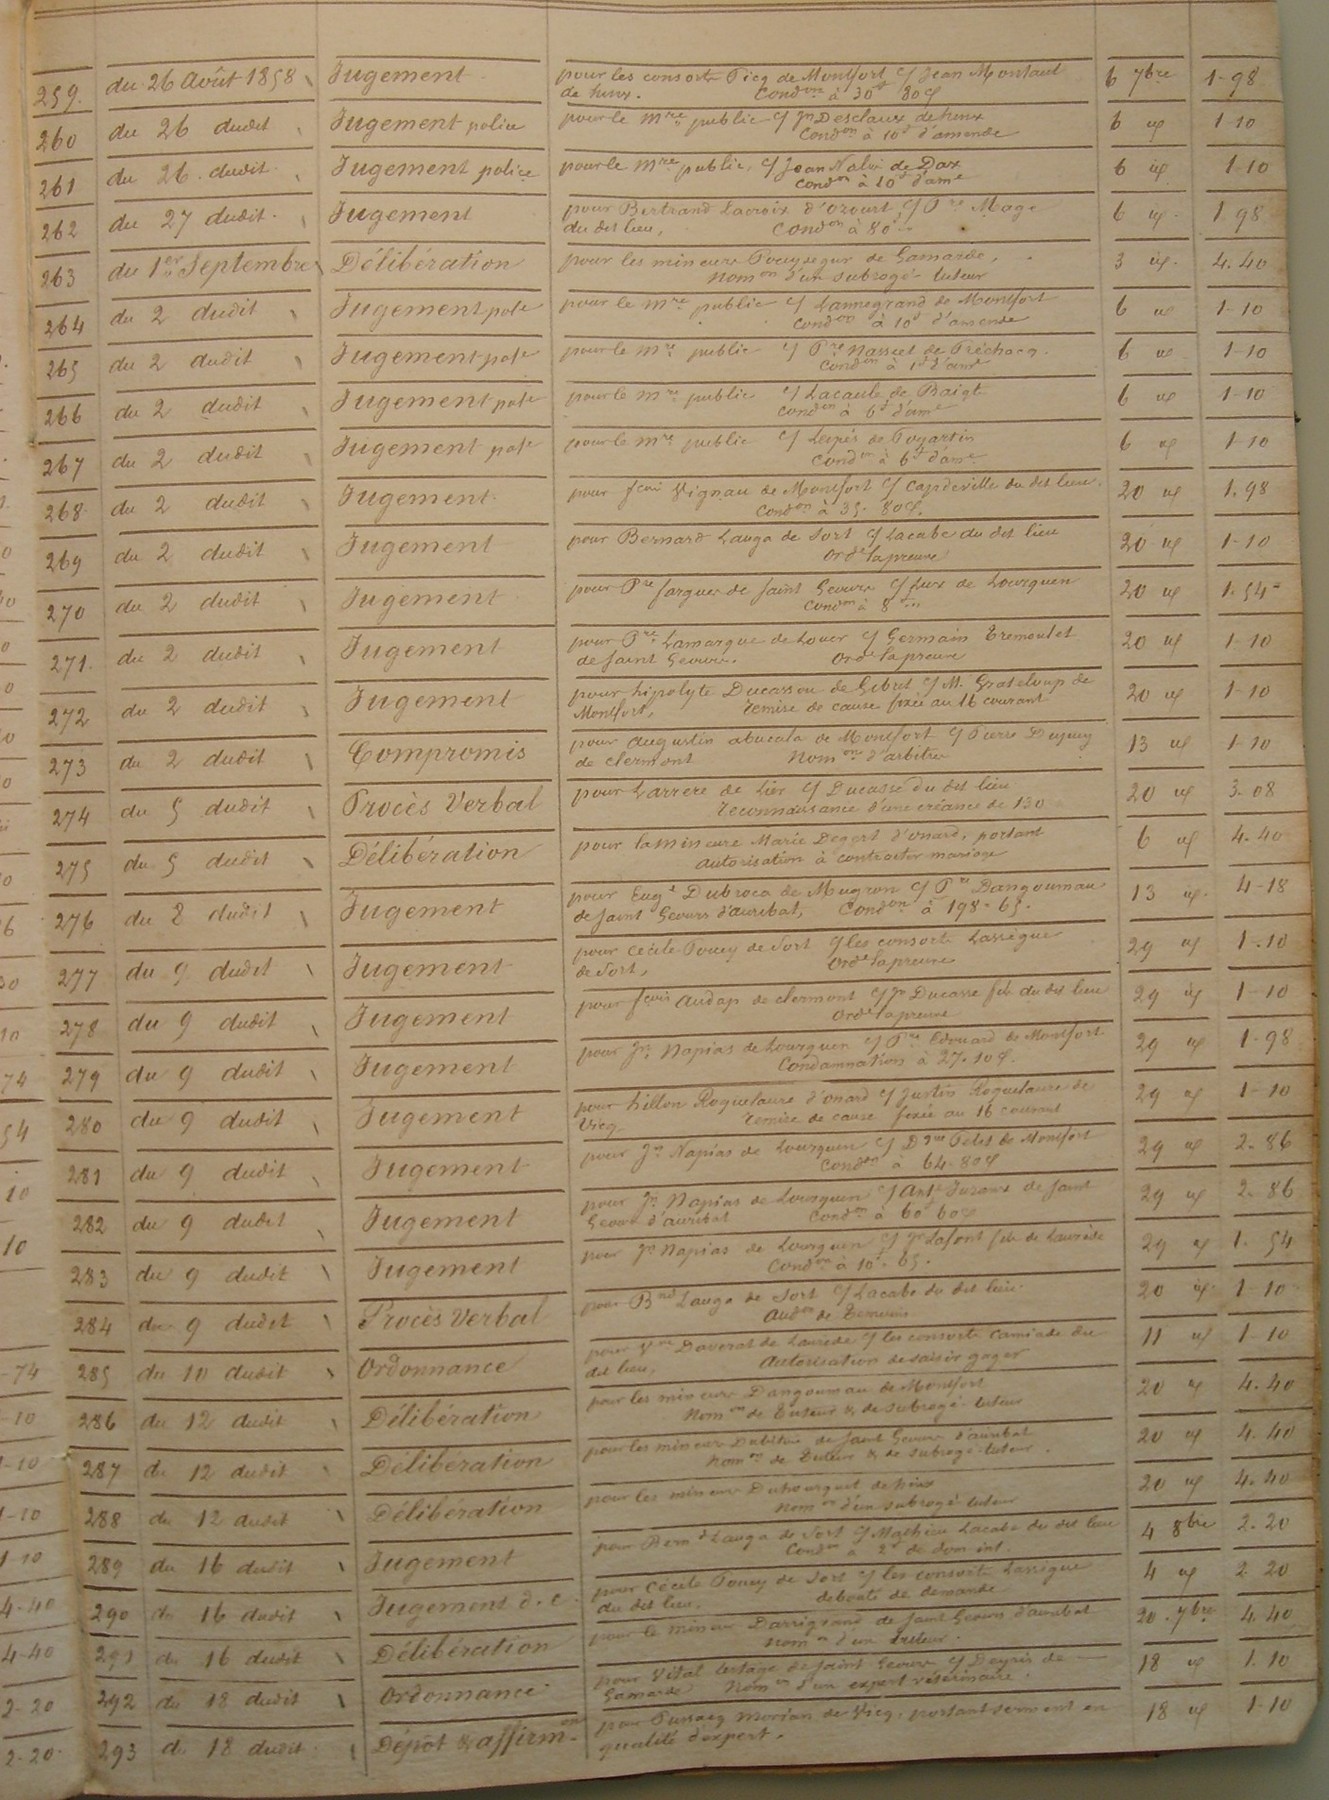 259. du 26 Août 1858 Jugement pour les consorts Picq de Montfort c/ Jean Montaut 6 7bre 1-98
de hinx. Condon à 30f 80c
260 du 26 dudit Jugement police pour le mre public c/ Jn Desclaux de hinx 6 id 1-10
Condon à 10f d'amende
261 du 26 dudit Jugement police pour le mre public, c/ Jean de Dax 6 id 1-10
condon à 10f d'ame
262 du 27 dudit Jugement pour Bertrand Lacroix d'ozourt c/ Pre Mage 6 id 1.98
du dit lieu, Condon à 80f
263 du 1er Septembre Délibération pour les mineurs Pouysegur de Gamarde, 3 id. 4.40
nomon d'un subrogé-tuteur
264 du 2 dudit Jugement pole pour le mre public c/ Lannegrand de Montfort 6 id 1-10
Condon à 10f d'amende
265 du 2 dudit Jugement pole pour le mre public c/ Pre Nassiet de Préchacq. 6 id 1-10
Condon à 1f d'ame
266 du 2 dudit Jugement pole pour le mre public c/ Lacaule de Baigts 6 id 1-10
Condon à 6f d'ame
267 du 2 dudit Jugement pole pour le mre public c/ Lespés de Poyartin 6 id 1-10
Condon à 6f d'ame
268 du 2 dudit Jugement pour fcois Vignau de Montfort c/ Capdeville du dit lieu. 20 id 1.98
Condon à 35-80c.
269 du 2 dudit Jugement pour Bernard Lauga de Sort c/ Lacabe du dit lieu 20 id 1-10
orde la preuve
270 du 2 dudit Jugement pour Pre fargues de Saint Geours c/ Lux de Lourquen 20 id 1.54
Condon à 8f
271. du 2 dudit Jugement pour Pre Lamarque de Louer c/ Germain Tremoulet 20 id 1-10
de Saint Geours. orde la preuve
272 du 2 dudit Jugement pour hipolyte Ducassou de Gibret c/ M. Grateloup de 20 id 1-10
Montfort, remise de cause fixée au 16 courant
273 du 2 dudit Compromis pour augustin abucala de Montfort c/ Pierre Dupuy 13 id 1-10
de clermont Nomon d'arbitre
274 du 5 dudit Procès Verbal pour Larrere de Lier c/ Ducasse du dit lieu 20 id 3.08
reconnaissance d'une créance de 130
275 du 5 dudit Délibération pour la mineure Marie Degert d'onard, portant 6 id 4.40
autorisation à contracter mariage
276 du 8 dudit Jugement pour Euge Dubroca de Mugron c/ Pre Dangoumau 13 id. 4-18
de Saint Geours d'auribat, Condon à 198-65.
277 du 9 dudit Jugement pour cécile Pouey de Sort c/ les consorts Lassègue 29 id 1.10
de Sort, orde la preuve
278 du 9 dudit Jugement pour fcois audap de clermont c/ Jn Ducasse fils du dit lieu 29 id 1-10
orde la preuve
279 du 9 dudit Jugement pour Jn Napias de Lourquen c/ Pre Edouard de Montfort 29 id 1.98
Condamnation à 27.10c.
280 du 9 dudit Jugement pour hillon Roquelaure d'onard c/ Justin Roquelaure de 29 id 1-10
Vicq remise de cause fixée au 16 courant
281 du 9 dudit Jugement pour Jn Napias de Lourquen c/ Petit de Montfort 29 id 2.86
Condon à 64-80c
282 du 9 dudit Jugement pour Jn Napias de Lourquen c/ Ant de Saint 29 id 2.86
Geours d'auribat Condon à 60f 60c
283 du 9 dudit Jugement pour Jn Napias de Lourquen c/ Jn Lafont fils de Laurède 29 id 1.54
Condon à 10f-65.
284 du 9 dudit Procès Verbal pour Bnd Lauga de Sort c/ Lacabe du dit lieu 20 id. 1-10
audon de Témoins
285 du 10 dudit Ordonnance pour Daverat de Laurède c/ les consorts Camiade du 11 id 1-10
dit lieu, autorisation de saisir gager
286 du 12 dudit Délibération pour les mineurs Dangoumau de Montfort 20 id 4.40
Nomon de Tuteur & de subrogé-tuteur
287 du 12 dudit Délibération pour les mineurs de Saint Geours d'auribat 20 id 4.40
Nomon de Tuteur & de subrogé-tuteur.
288 du 12 dudit Délibération pour les mineurs Duhourquet de hinx 20 id 4.40
Nomon d'un subrogé-tuteur
289 du 16 dudit Jugement pour Bernd Lauga de Sort c/ Mathieu Lacabe du dit lieu 4 8bre 2.20
Condon à 2f de dom int.
290 du 16 dudit Jugement d. c. pour Cécile Pouey de Sort c/ les consorts Lassègue 4 id 2.20
du dit lieu. déboute de demande
291 du 16 dudit Délibération pour le mineur Darrigrand de Saint Geours d'auribat 20. 7bre 4.40
Nomon d'un tuteur.
292 du 18 dudit Ordonnance pour Vital Lestage de Saint Geours c/ Deyris de 18 id 1.10
Gamarde Nomon d'un expert vétérinaire.
293 du 18 dudit Dépôt & affirmon pour Morian de Vicq, portant serment en 18 id 1-10
qualité d'expert.